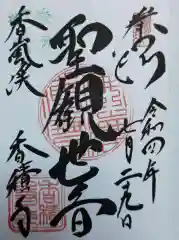 奉拝
令和四年
七月二十九日
聖観世音
香嵐渓
香積寺